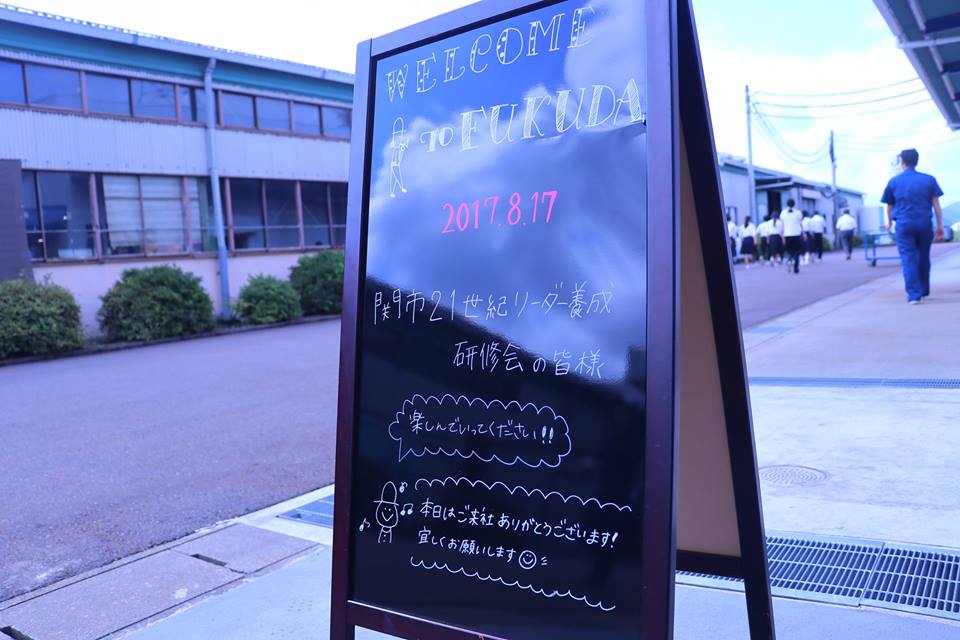 WELCOME
TO FUKUDA
2017.8.17
関市21世紀リーダー養成
研修会の皆様
楽しんでいってください!!
本日はご来社ありがとうございます!
宜しくお願いします